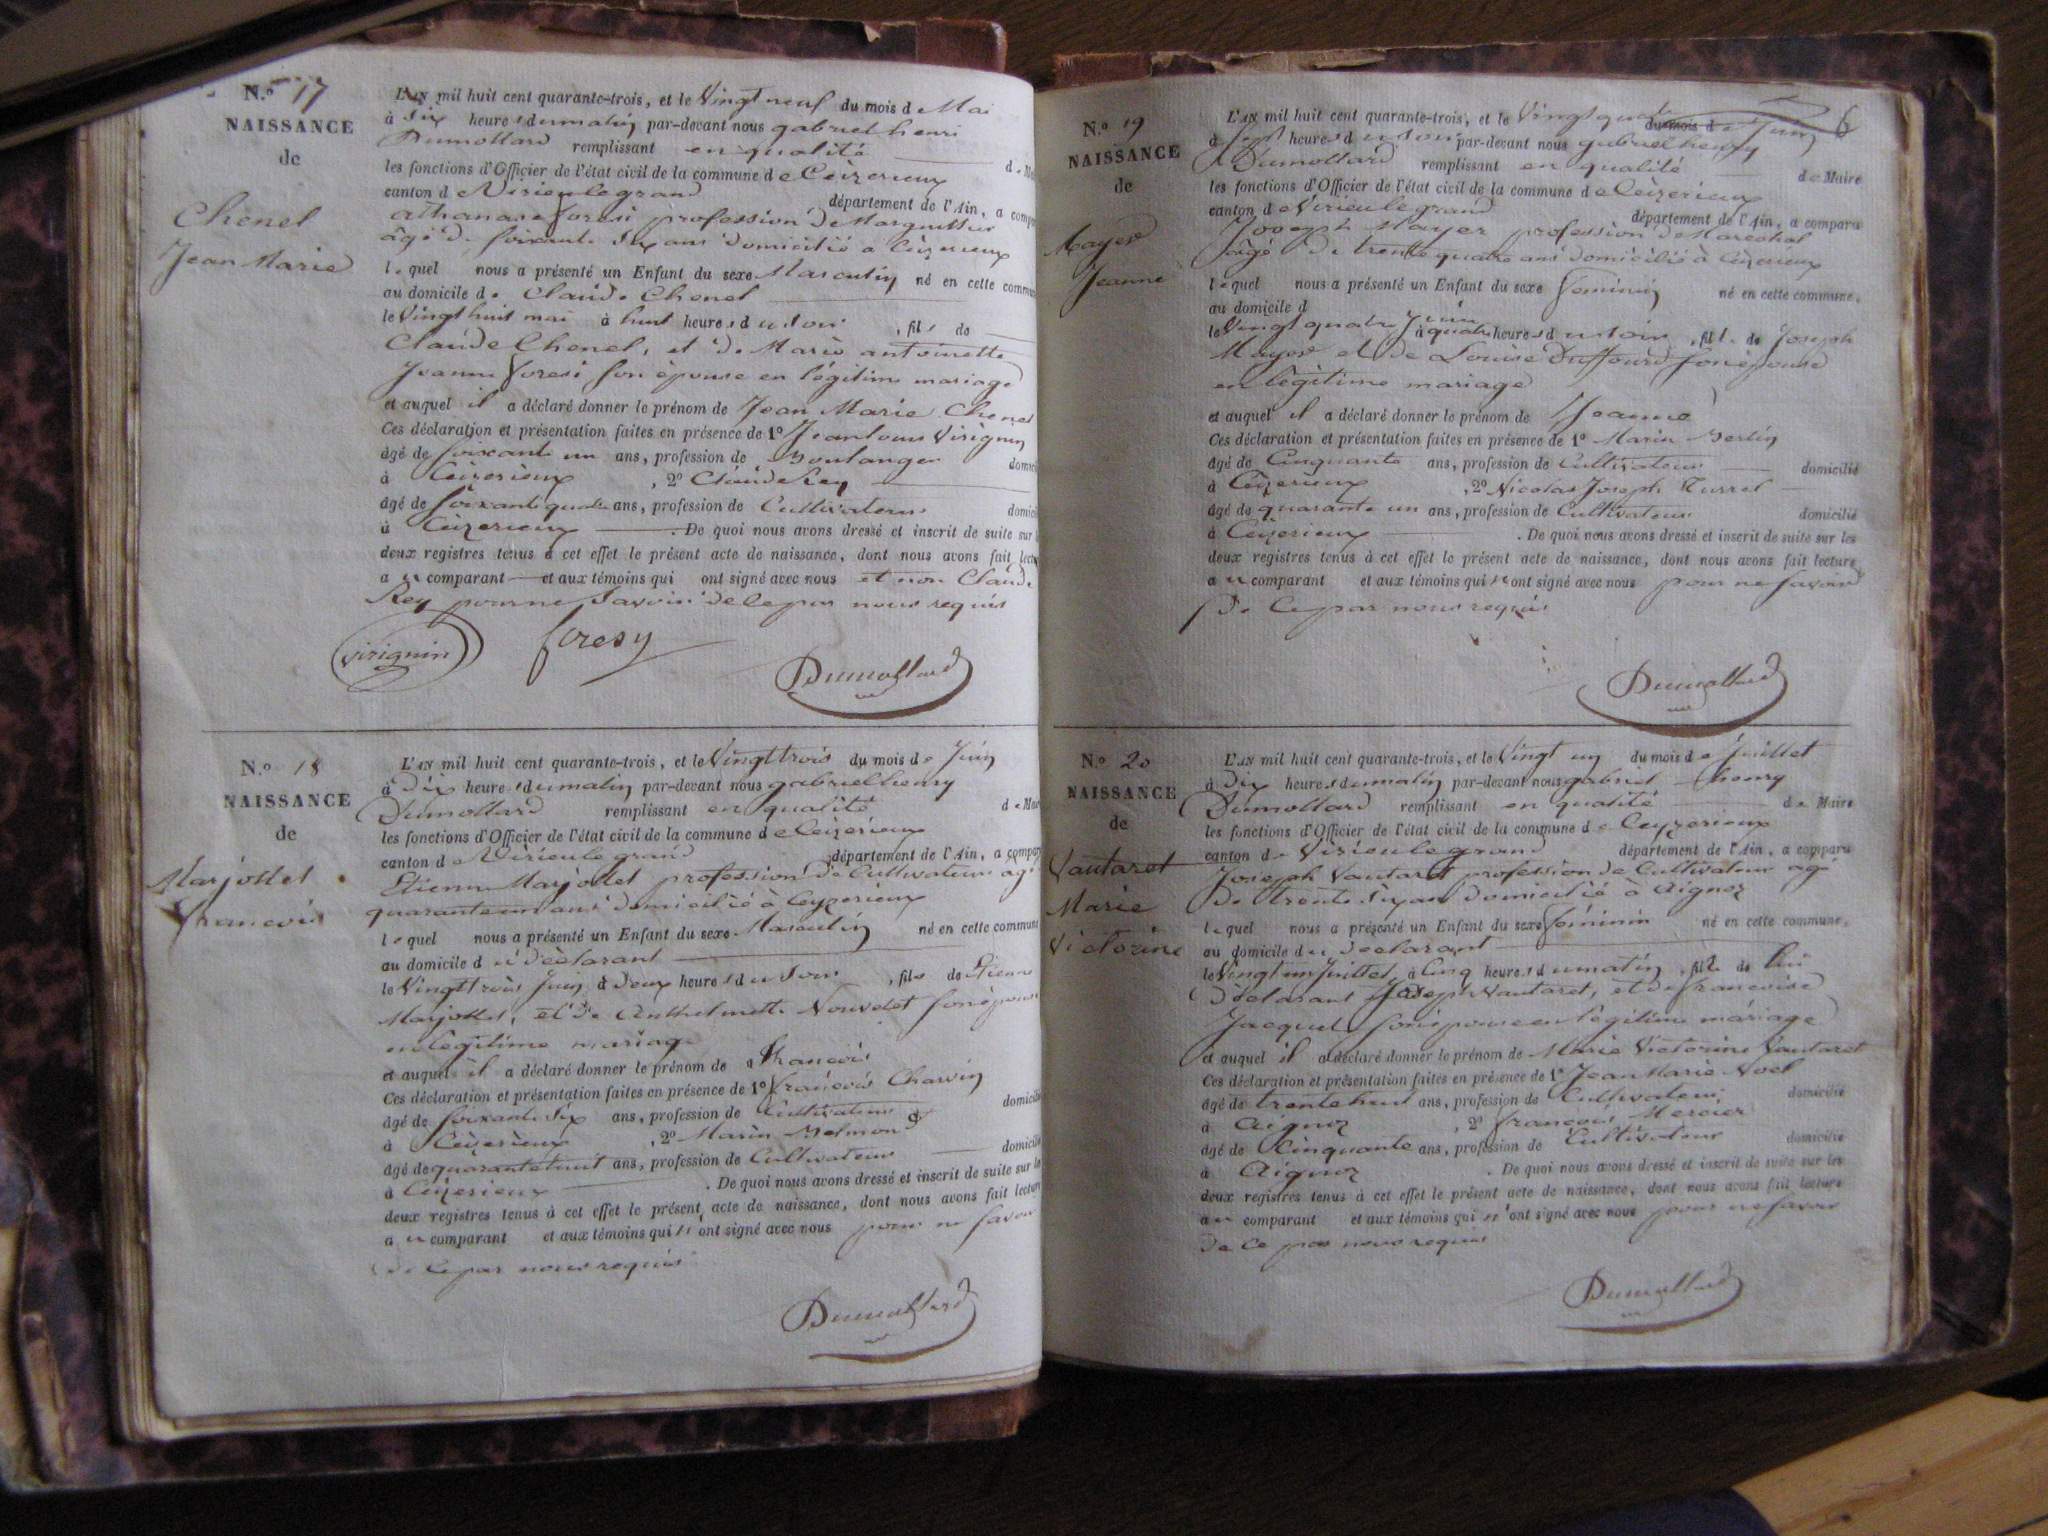 N.º 17
NAISSANCE
de
Chenel
Jean Marie
L'AN mil huit cent quarante-trois, et le Vingt neuf du mois de Mai
à Six heures du matin par-devant nous gabriel henri
Dumollard remplissant en qualité de Mai
les fonctions d'Officier de l'état civil de la commune de Ceizerieux
canton de Virieu le grand département de l'Ain, a compa
athanase foresi profession de
âgé de soixante six ans domicilié a Ceizerieux
lequel nous a présenté un Enfant du sexe Masculin né en cette commun
au domicile de Claude Chenel
le Vingt huit mai à huit heures du soir , fils de
Claude Chenel, et de Marie antoinette
Jeanne foresi son epouse en légitime mariage
et auquel il a déclaré donner le prénom de Jean Marie Chenel
Ces déclaration et présentation faites en présence de 1º Jean louis Virignin
âgé de soixante un ans, profession de Boulanger domici
à Ceizerieux , 2º Claude Rey
âgé de soixante quatre ans, profession de Cultivateur domici
à Ceizerieux . De quoi nous avons dressé et inscrit de suite sur l
deux registres tenus à cet effet le présent acte de naissance, dont nous avons fait lectu
au comparant et aux témoins qui ont signé avec nous et non Claude
Rey pour ne Savoir de ce par nous requis
Virignin foresy Dumollard
N.º 18
NAISSANCE
de
Marjollet
francois
L'AN mil huit cent quarante-trois, et le Vingt trois du mois de Juin
à Dix heures du matin par-devant nous gabriel henry
Dumollard remplissant en qualité de Mai
les fonctions d'Officier de l'état civil de la commune de Ceizerieux
canton de Virieu le grand département de l'Ain, a compar
Etienne Marjollet profession de Cultivateur agé
quarante un ans domicilié à Ceyzerieux
lequel nous a présenté un Enfant du sexe Masculin né en cette commune
au domicile du déclarant
le Vingt trois Juin à Deux heures du soir , fils de Etienne
Marjollet, et de Anthelmette Nouvelet son épouse
en légitime mariage
et auquel il a déclaré donner le prénom de francois
Ces déclaration et présentation faites en présence de 1º francois Charvin
âgé de soixante six ans, profession de Cultivateur domicilié
à Ceizerieux , 2º Marin
âgé de quarante huit ans, profession de Cultivateur domicilié
à Ceizerieux . De quoi nous avons dressé et inscrit de suite sur le
deux registres tenus à cet effet le présent acte de naissance, dont nous avons fait lecture
au comparant et aux témoins qui n'ont signé avec nous pour ne savoir
de ce par nous requis
Dumollard
6
N.º 19
NAISSANCE
de
Mayer
Jeanne
L'AN mil huit cent quarante-trois, et le Vingt quatre du mois de Juin
à Sept heures du soir par-devant nous gabriel henry
Dumollard remplissant en qualité de Maire
les fonctions d'Officier de l'état civil de la commune de Ceizerieux
canton de Virieu le grand département de l'Ain, a comparu
Joseph Mayer profession de Marechal
âgé de trente quatre ans domicilié à Ceizerieux
lequel nous a présenté un Enfant du sexe féminin né en cette commune,
au domicile d
le Vingt quatre Juin à quatre heures du soir , fille de Joseph
Mayer et de Louise Duffourd son épouse
en légitime mariage
et auquel il a déclaré donner le prénom de Jeanne
Ces déclaration et présentation faites en présence de 1º Marin Berlin
âgé de Cinquante ans, profession de Cultivateur domicilié
à Ceizerieux , 2º Nicolas Joseph Turrel
âgé de quarante un ans, profession de Cultivateur domicilié
à Ceizerieux . De quoi nous avons dressé et inscrit de suite sur les
deux registres tenus à cet effet le présent acte de naissance, dont nous avons fait lecture
au comparant et aux témoins qui n'ont signé avec nous pour ne savoir
de ce par nous requis
Dumollard
N.º 20
NAISSANCE
de
Vautaret
Marie
Victorine
L'AN mil huit cent quarante-trois, et le Vingt un du mois de Juillet
à Dix heures du matin par-devant nous gabriel henry
Dumollard remplissant en qualité de Maire
les fonctions d'Officier de l'état civil de la commune de Ceyzerieux
canton de Virieu le grand département de l'Ain, a comparu
Joseph Vautaret profession de Cultivateur agé
de trente six ans domicilié à Aignoz
lequel nous a présenté un Enfant du sexe féminin né en cette commune,
au domicile du Declarant
le Vingt un Juillet à Cinq heures du matin , fille de lui
Déclarant Joseph Vautaret, et de francoise
Jacquet son épouse en légitime mariage
et auquel il a déclaré donner le prénom de Marie Victorine Vautaret
Ces déclaration et présentation faites en présence de 1º Jean Marie Noel
âgé de trente huit ans, profession de Cultivateur domicilié
à Aignoz , 2º francois Mercier
âgé de Cinquante ans, profession de Cultivateur domicilié
à Aignoz . De quoi nous avons dressé et inscrit de suite sur les
deux registres tenus à cet effet le présent acte de naissance, dont nous avons fait lecture
au comparant et aux témoins qui n'ont signé avec nous pour ne savoir
de ce par nous requis
Dumollard